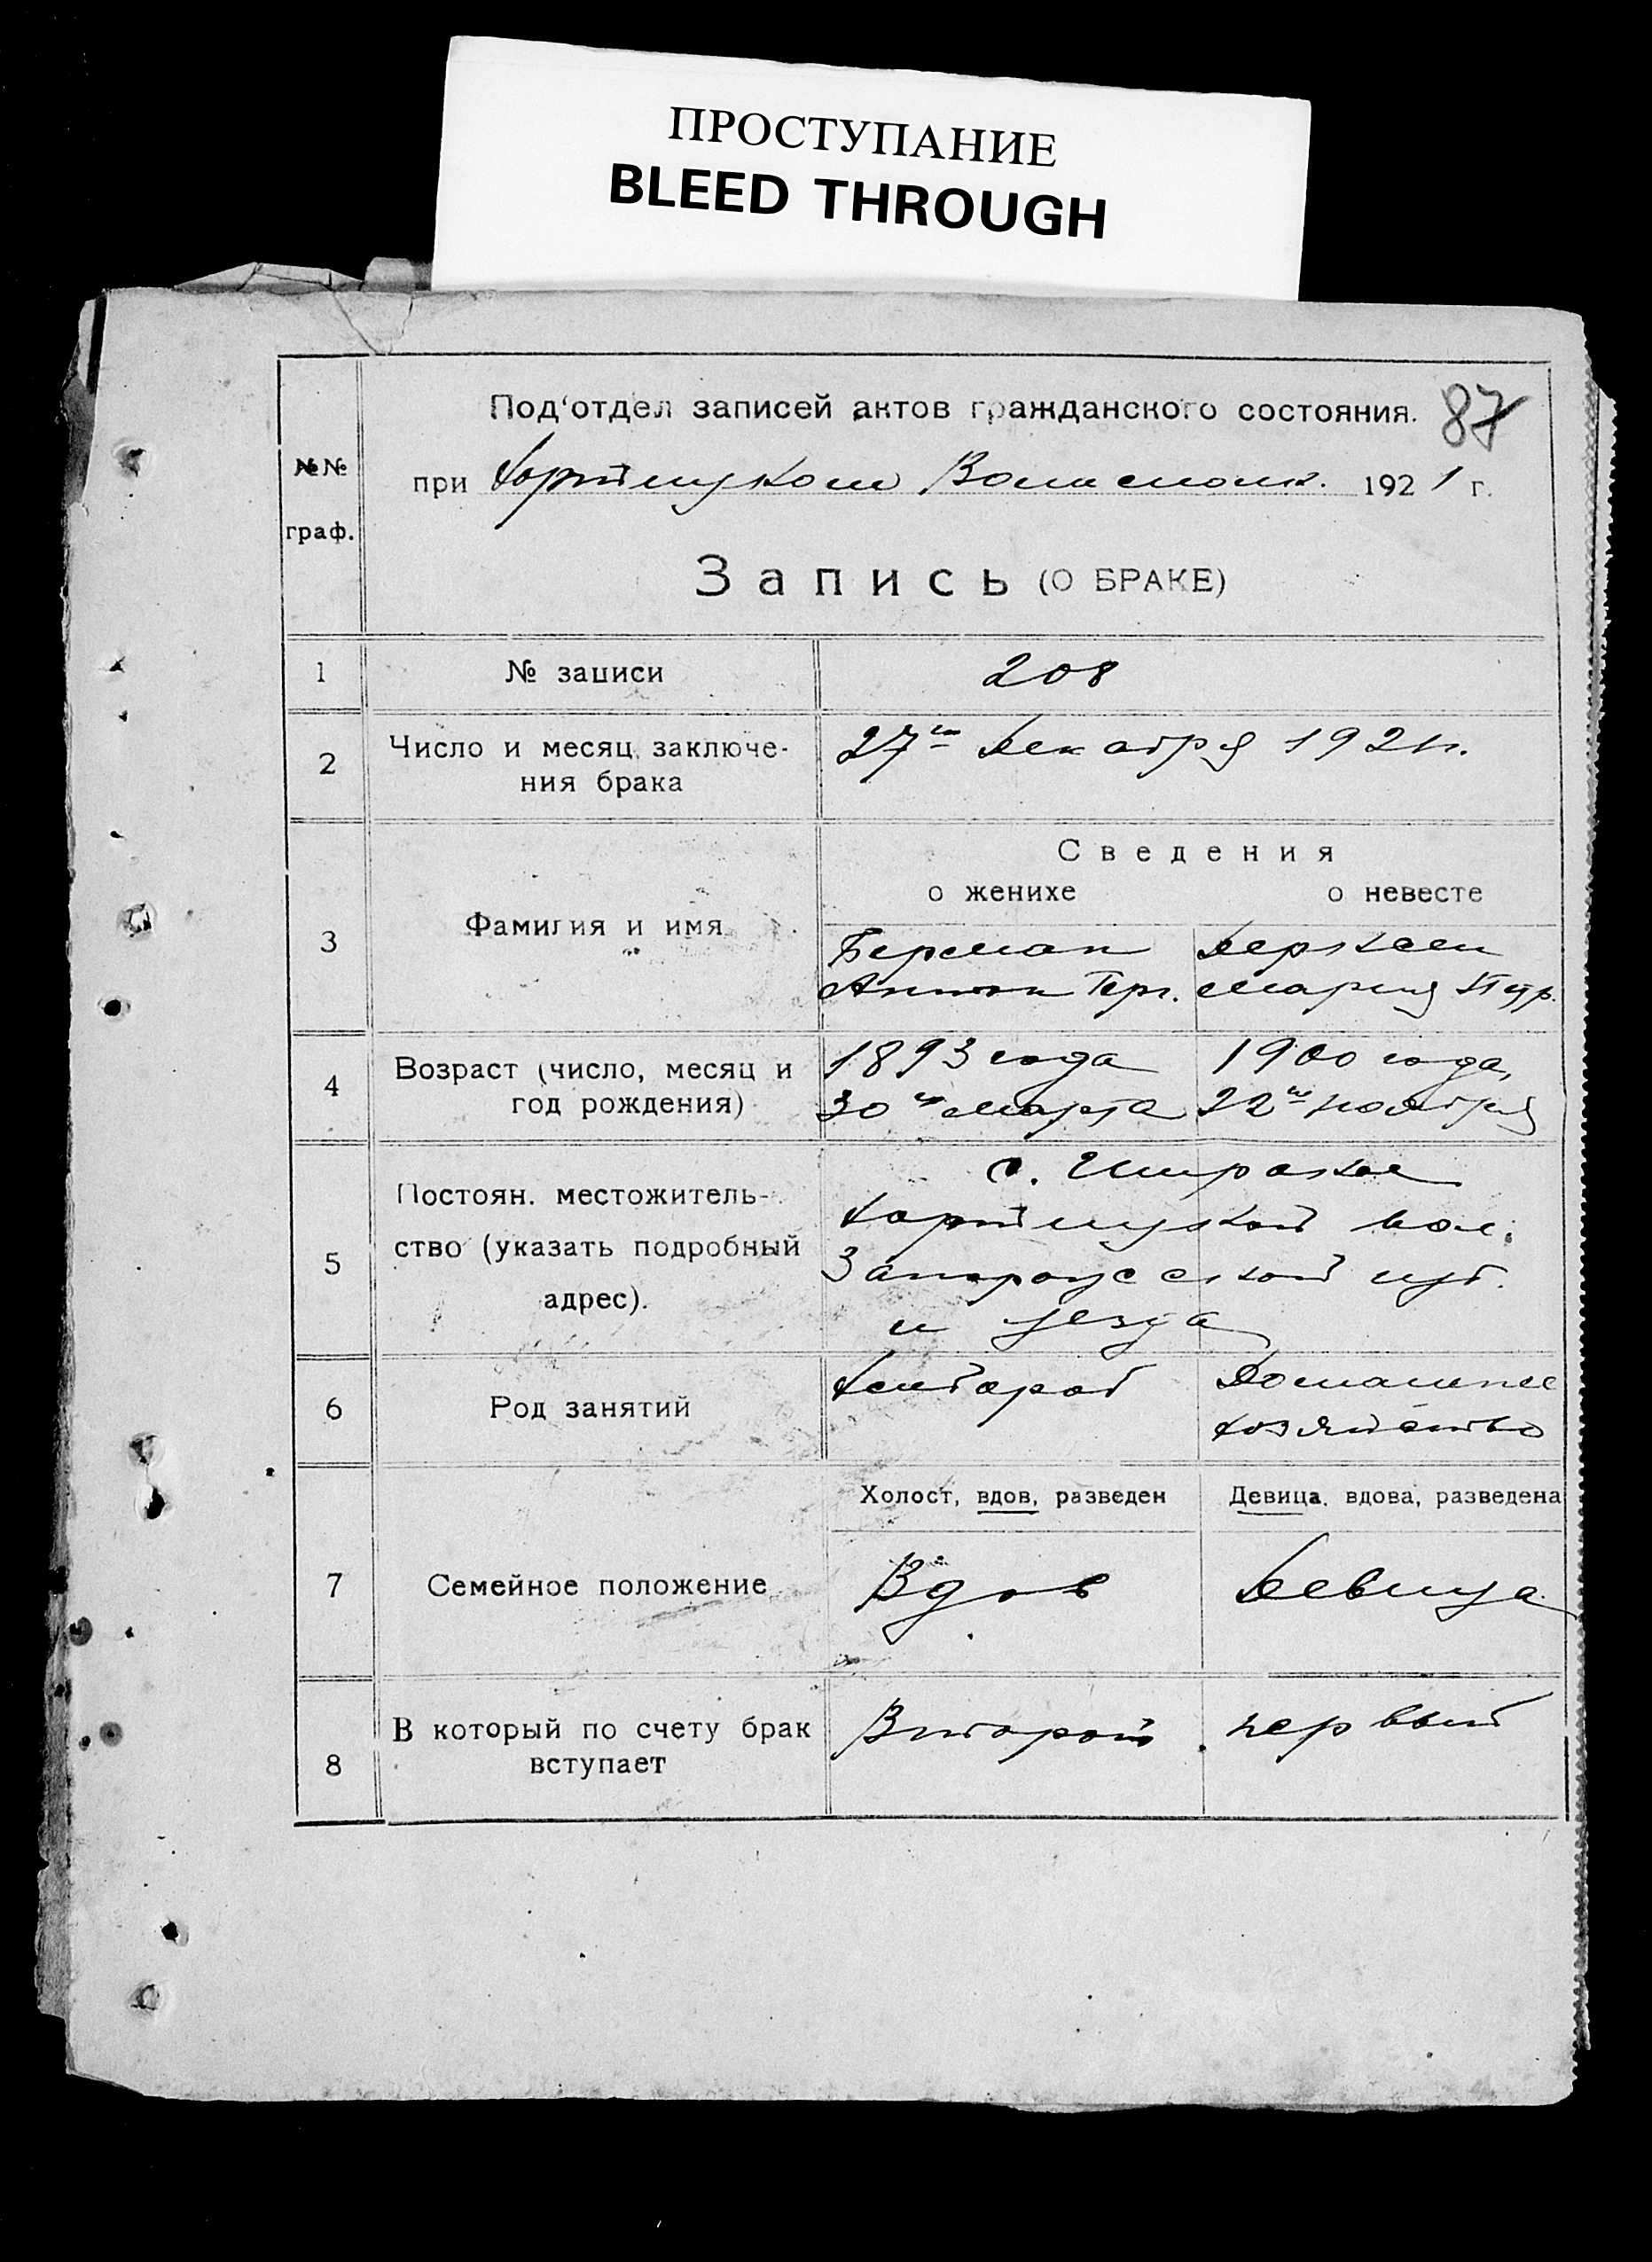 ПРОСТУПАНИЕ
BLEED THROUGH
Под'отдел записей актов гражданского состояния. 87
№№
граф.
при Хортицком Волисполк. 1921 г.
Запись (О БРАКЕ)
1 № записи 208
2 Число и месяц заключе- 27го Декабря 1921г.
ния брака
Сведения
о женихе о невесте
3 Фамилия и имя Берман
Антон Гер. Мария Петр.
4 Возраст (число, месяц и 1893 года 1900 года,
год рождения) 30го марта 22го ноября
5 Постоян. местожитель- с. Широкое
ство (указать подробный Хортицкой вол.
адрес). Запорожской губ.
и уезда
6 Род занятий Хлебороб Домашнее
хозяйство
Холост, вдов, разведен Девица, вдова, разведена
7 Семейное положение Вдов Девица
8 В который по счету брак Второй первый
вступает